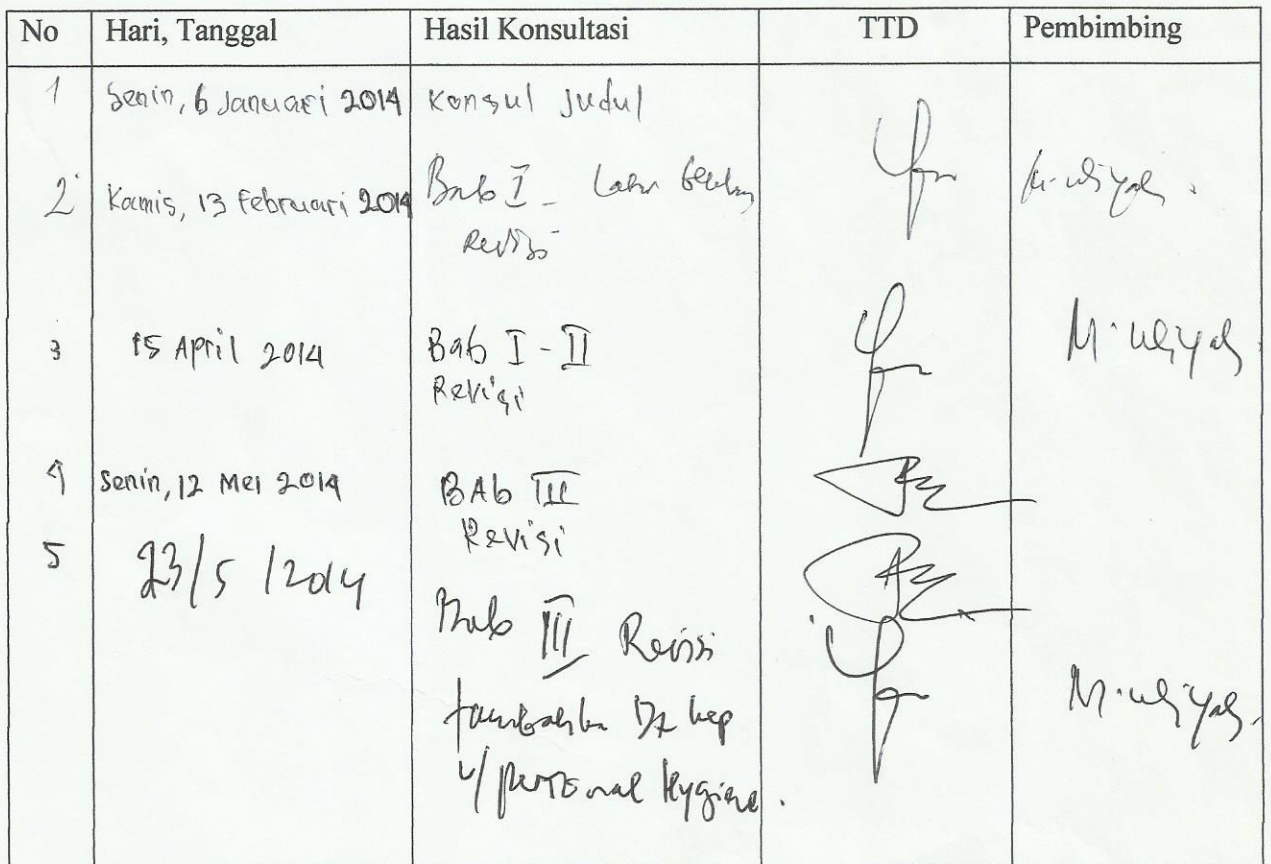 No Hari, Tanggal Hasil Konsultasi TTD Pembimbing
1 Senin, 6 Januari 2014 Konsul Judul
2 Kamis, 13 Februari 2014 Bab I -
Revisi
3 15 April 2014 Bab I - II
Revisi
4 Senin, 12 Mei 2014 BAb III
Revisi
5 23/5/2014
Bab III Revisi
Dx kep
u/ personal Hygiene.